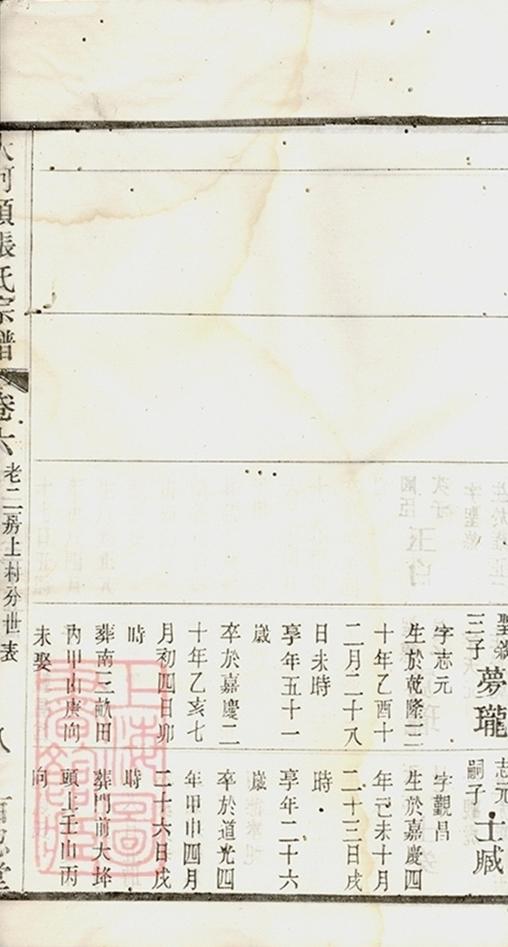 聖義
三子
夢瓏
字志元
生於乾隆三
十年乙酉十
二月二十八
日未時
享年五十一
歲
卒於嘉慶二
十年乙亥七
月初四日卯
時
葬南三畝田
內甲山庚向
未娶
志元
嗣子
士臧
字觀昌
生於嘉慶四
年己未十月
二十三日戌
時
享年二十六
歲
卒於道光四
年甲申四月
二十六日戌
時
葬門前大垟
頭上壬山丙
向
大河頭張氏宗譜
卷六
老二房上村分世表
八
百忍堂
上海圖書館藏